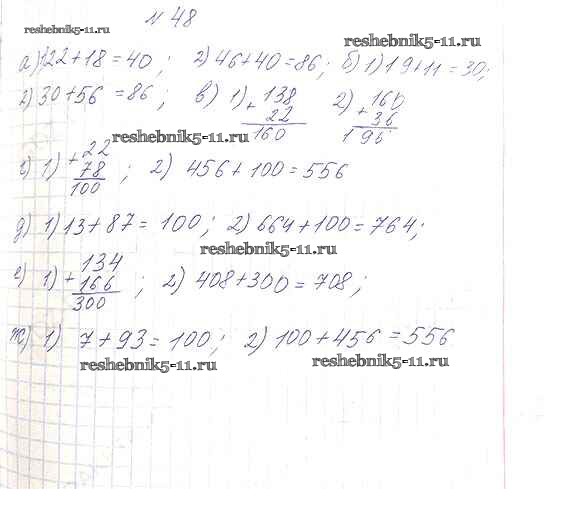 N 48
reshebnik5-11.ru
reshebnik5-11.ru
а) 1) 22+18=40; 2) 46+40=86; б) 1) 19+11=30;
2) 30+56=86; в) 1) 138 2) 160
+ +
22 36
160 196
reshebnik5-11.ru
г) 1) + 22 ; 2) 456+100=556
78
100
д) 1) 13+87=100; 2) 664+100=764;
reshebnik5-11.ru
е) 1) + 134 ; 2) 408+300=708;
166
300
ж) 1) 7+93=100; 2) 100+456=556
reshebnik5-11.ru
reshebnik5-11.ru